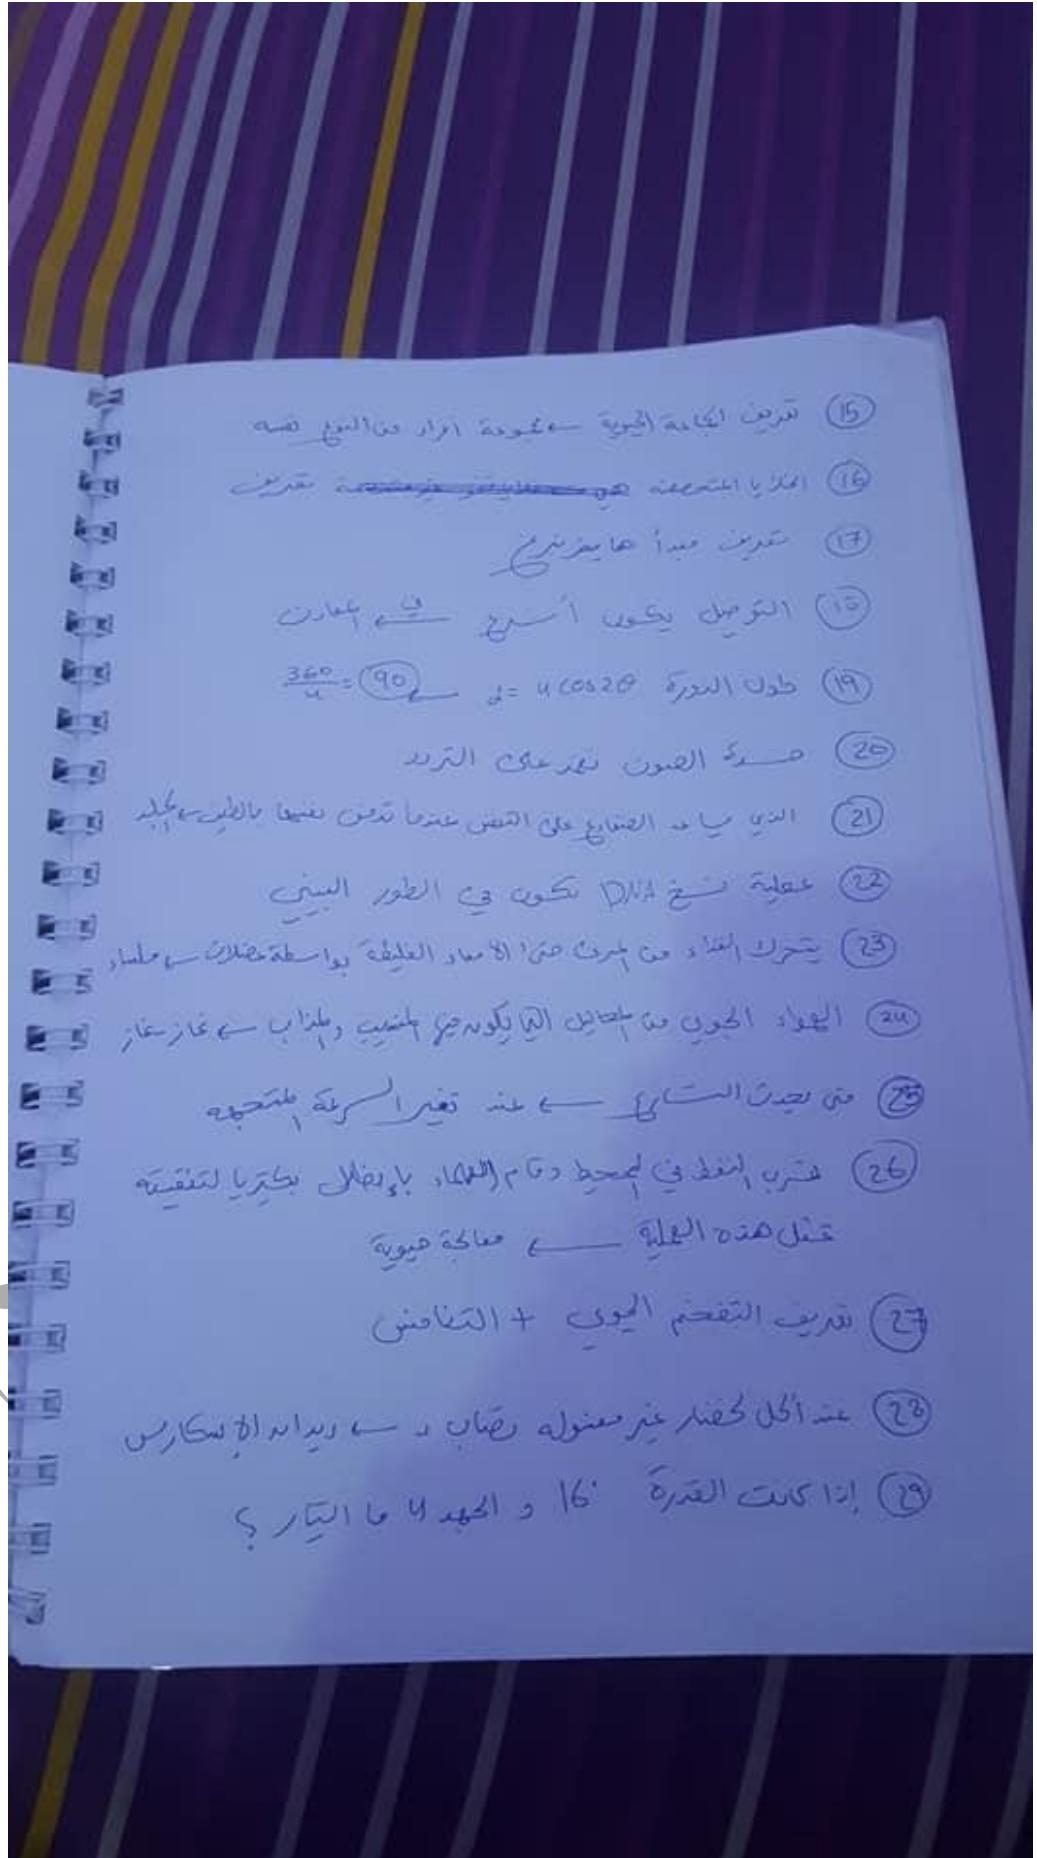 (15) تعريف الجماعة الحيوية ← مجموعة افراد من النوع نفسه
(16) الخلايا المتخصصة تعريف
(17) تعريف مبدأ هايزنبرج
(18) التوصيل يكون أسرع في ← المعادن
(19) طول الدورة y = 4 cos 2θ ← (90) = 360/4
(20) حدة الصوت تعتمد على التردد
(21) الذي يساعد الضفادع على التنفس عندما تدفن نفسها بالطين ← الجلد
(22) عملية نسخ DNA تكون في الطور البيني
(23) يتحرك الغذاء من المرئ حتى الأمعاء الغليظة بواسطة عضلات ← ملساء
(24) الهواء الجوي من المحاليل التي يكون فيها المذيب والمذاب ← غاز - غاز
(25) متى يحدث التسارع ← عند تغير السرعة المتجهه
(26) تسرب النفط في المحيط وقام العلماء بإدخال بكتريا لتنقيته
تمثل هذه العملية ← معالجة حيوية
(27) تعريف التضخم الحيوي + التطامن
(28) عند أكل خضار غير مغسوله يصاب ← ديدان الإسكارس
(29) إذا كانت القدرة 16 و الجهد 4 ما التيار ؟